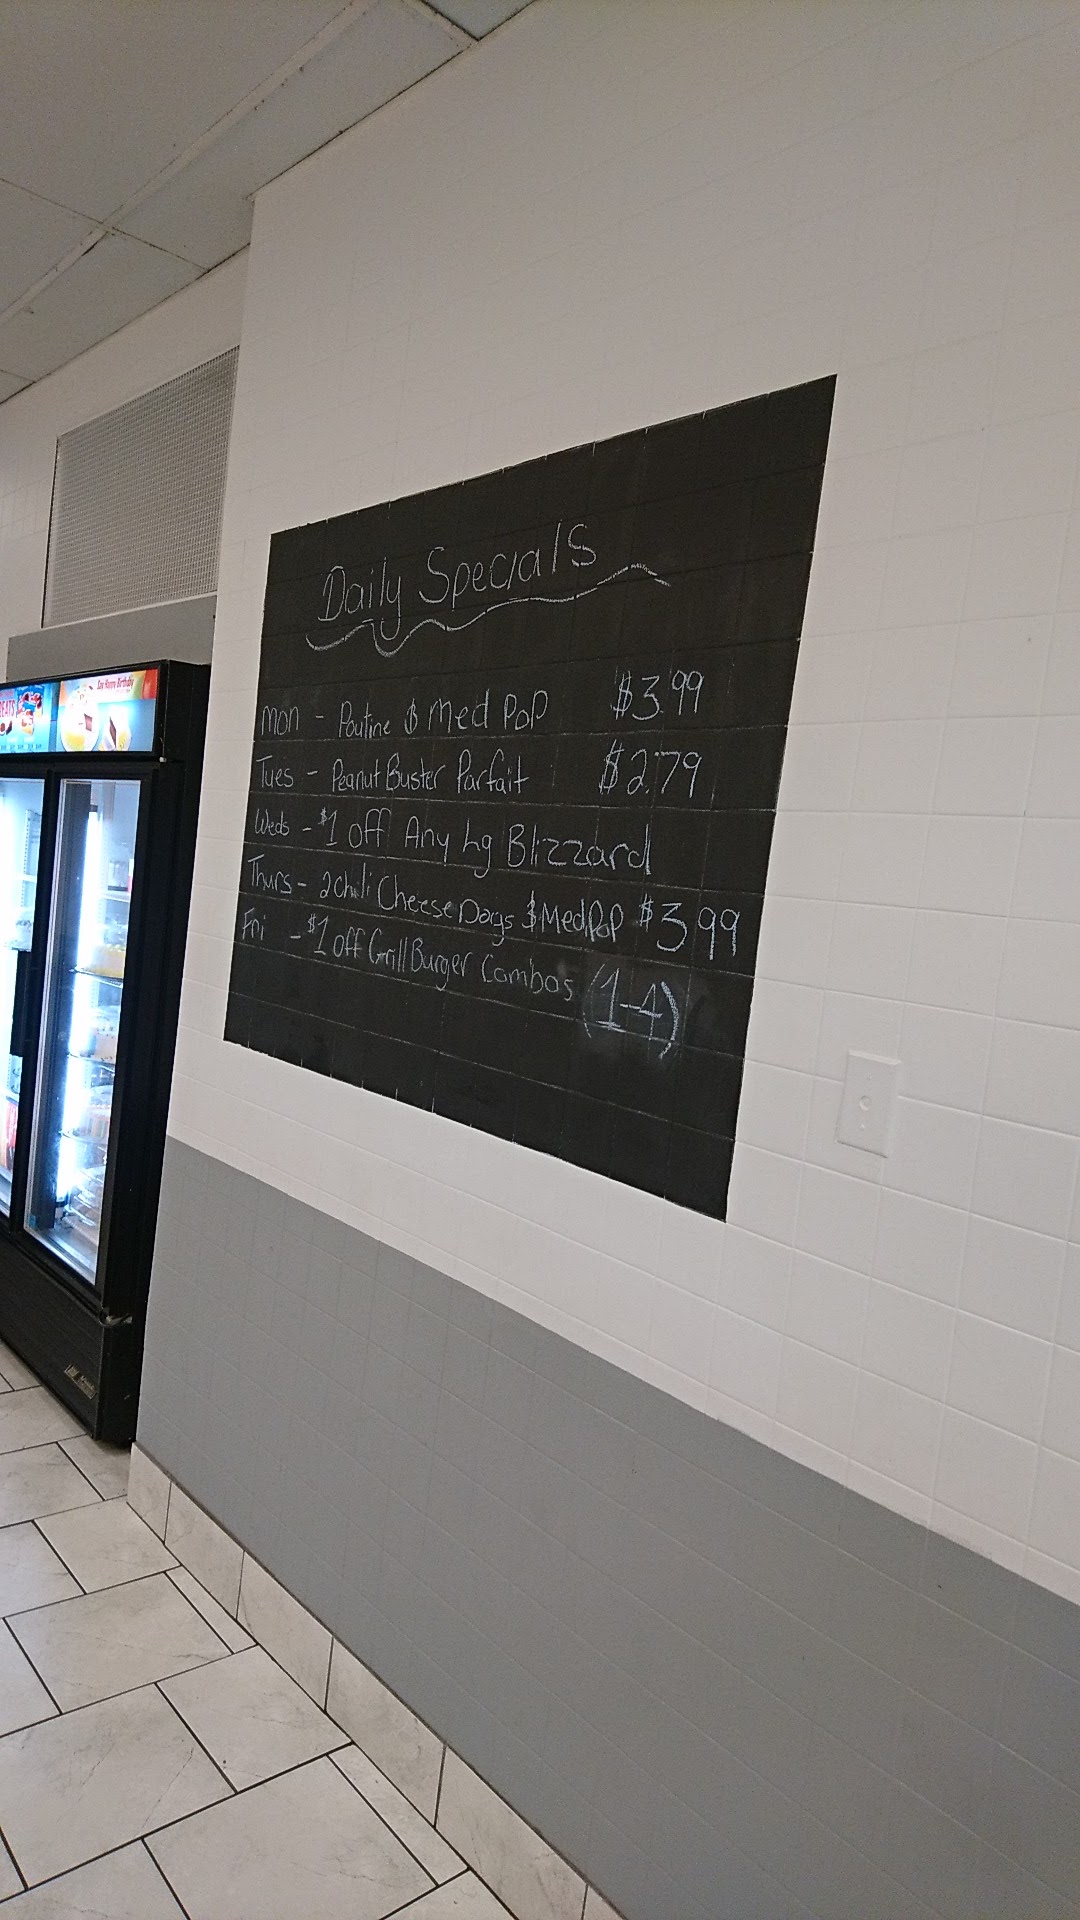 Daily Specials
Mon - Poutine & Med Pop $3.99
Tues - Peanut Buster Parfait $2.79
Weds - $1 off Any Lg Blizzard
Thurs - 2 Chili Cheese Dogs & Med Pop $3.99
Fri - $1 off Grill Burger Combos (1-4)
Say Happy Birthday